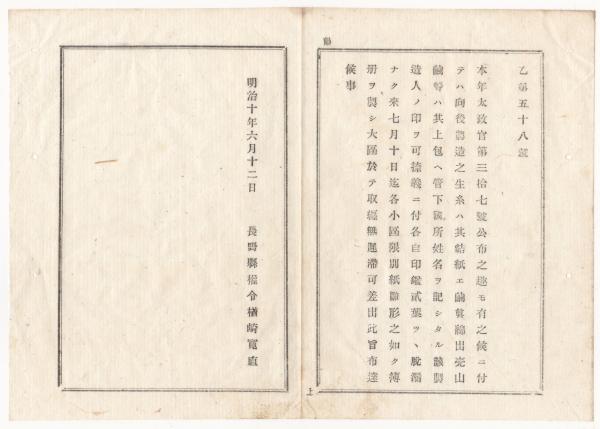 勸
乙第五十八號
本年太政官第三拾七號公布之趣モ有之候ニ付
テハ向後製造之生糸ハ其結紙エ繭眞綿出売山
繭等ハ其上包ヘ管下國所姓名ヲ記シタル該製
造人ノ印ヲ可捺義ニ付各自印鑑貳葉ツヽ脱漏
ナク來七月十日迄各小區限別紙雛形之如ク簿
册ヲ製シ大區於テ取纒無遲滯可差出此旨布達
候事
上
明治十年六月十二日
長野縣權令楢崎寛直